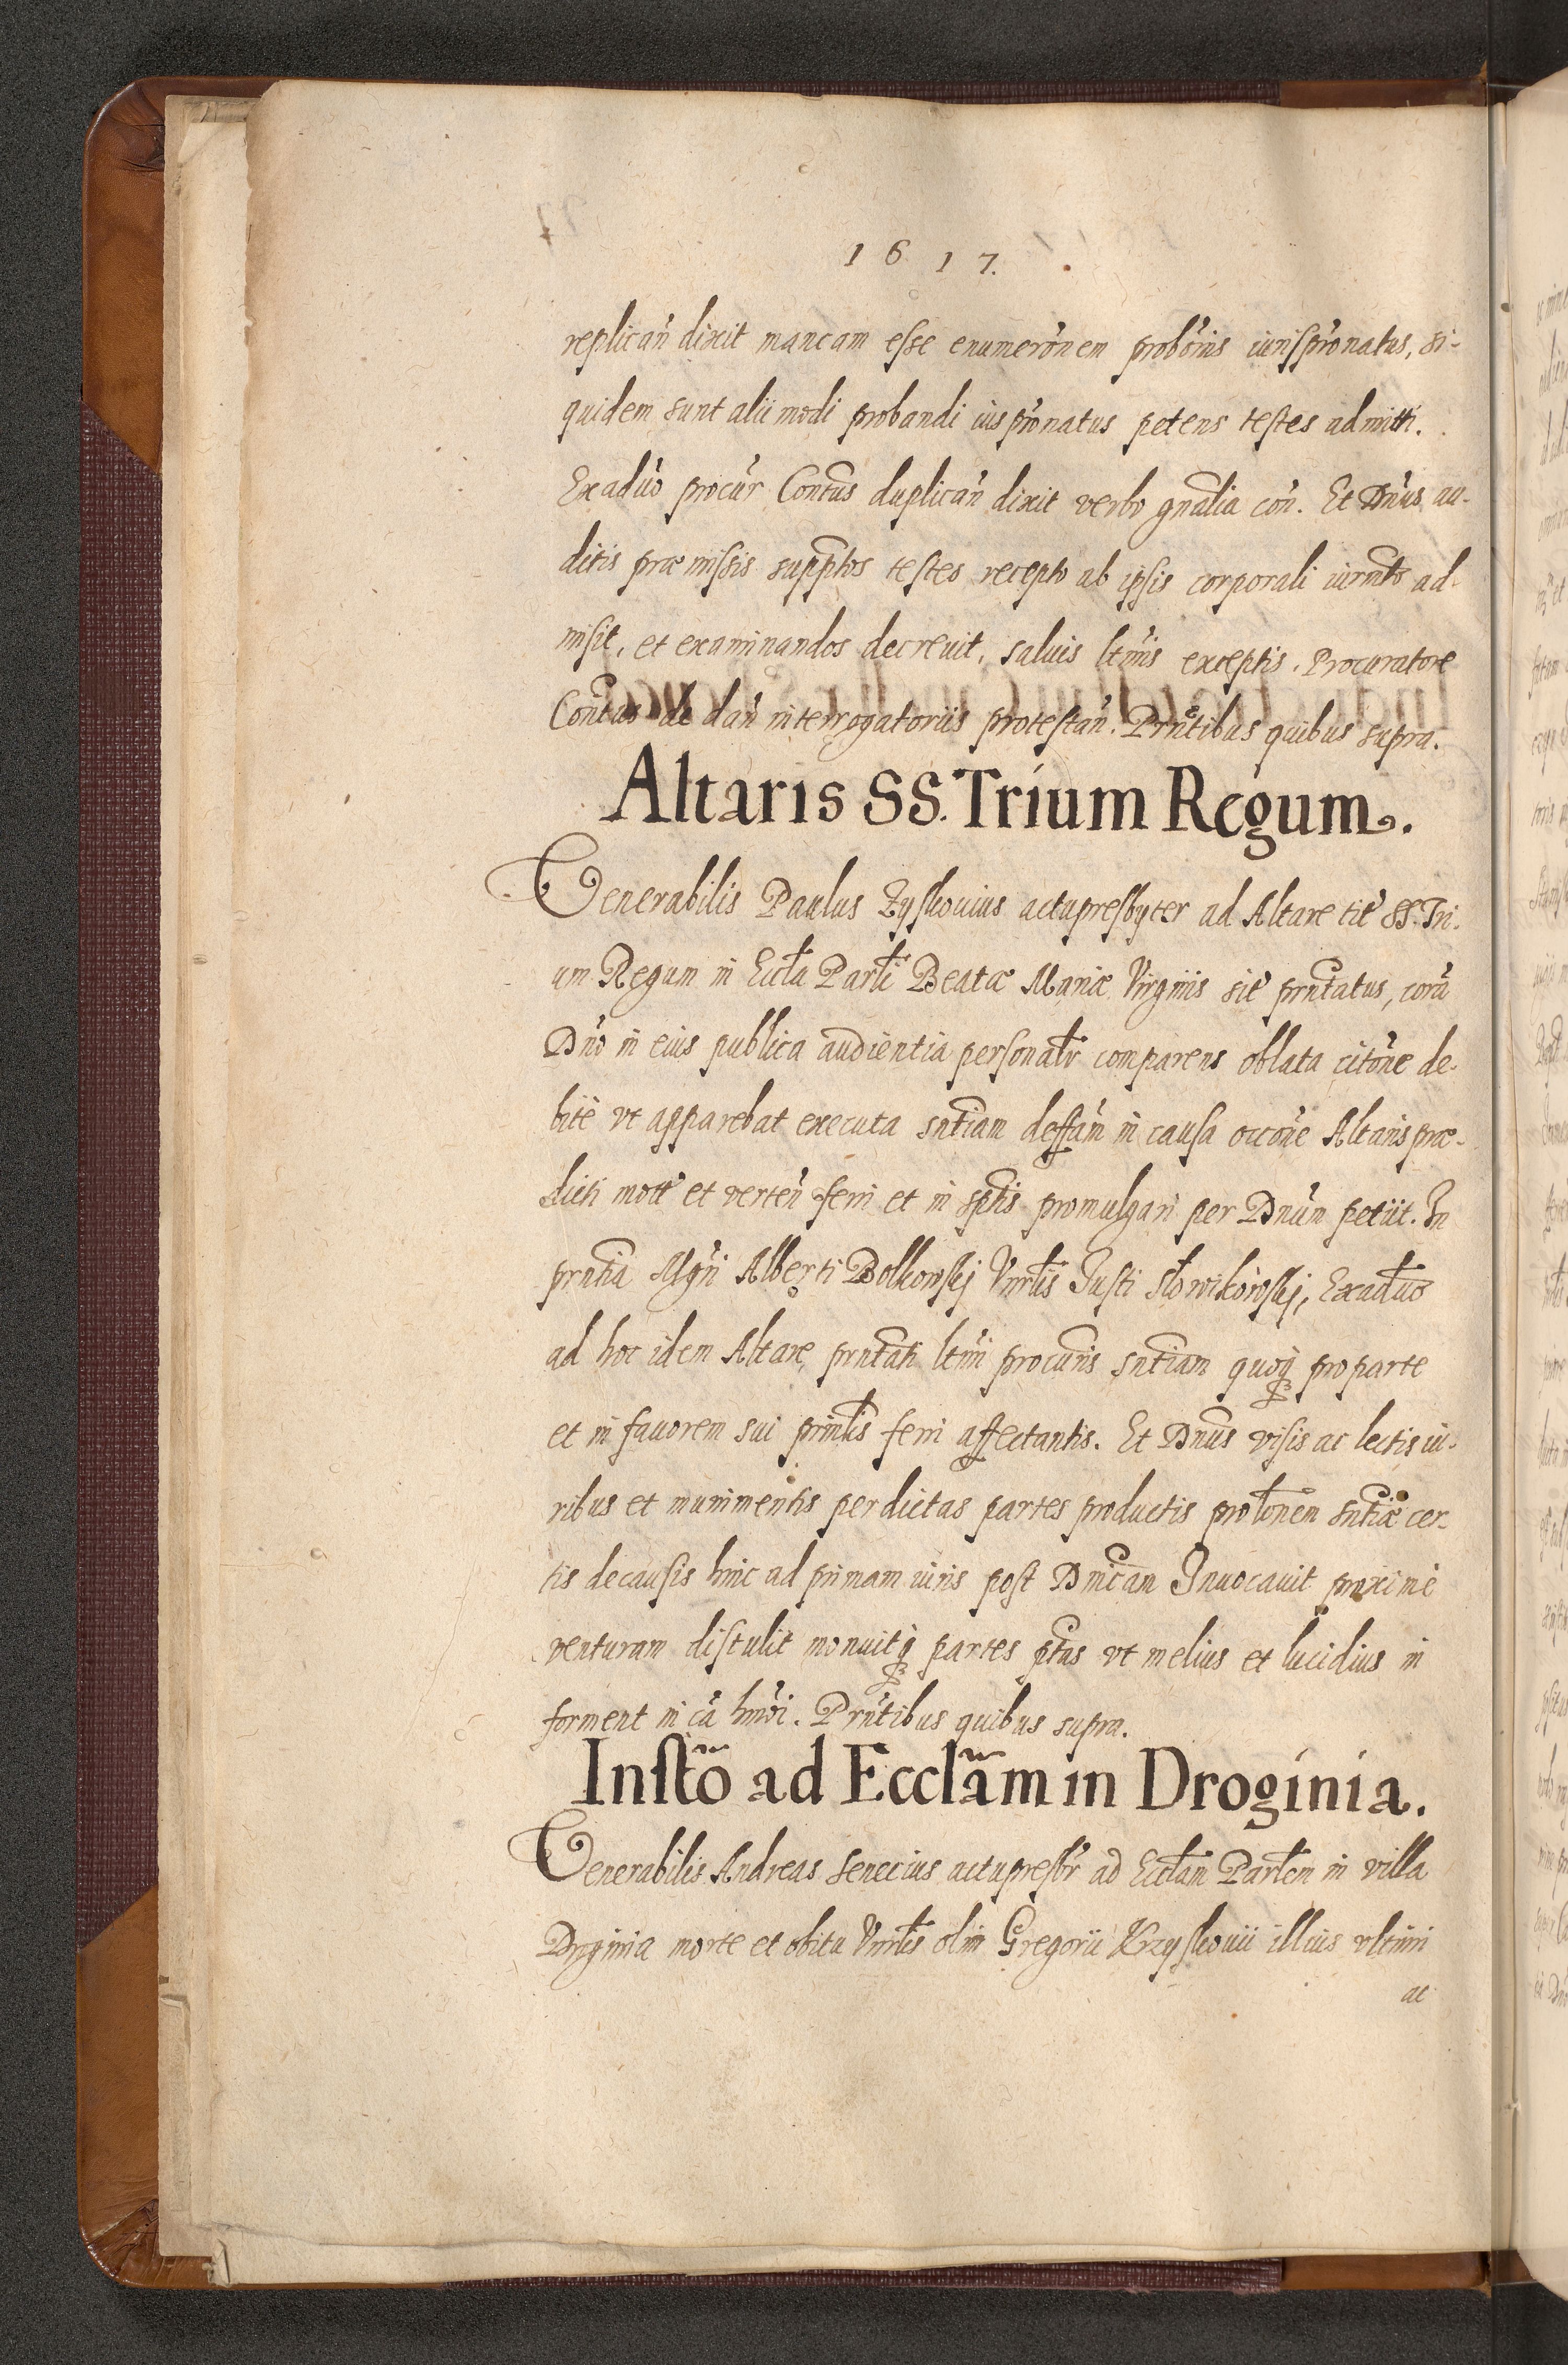 1617.
replican̄ dixit mancam esse enumerōnem probōnis iurispr̄onatus, si-
quidem sunt alii modi probandi ius pr̄onatus petens testes admitti.
Ex adūo procūr Contūs duplican̄ dixit verbo gnālia con̄. Et Dn̄us au-
ditis præmissis supptos testes recepto ab ipsis corporali iurmto ad-
misit, et examinandos decreuit, saluis ltmis exceptis. Procuratore
Contūs de dan̄ interrogatoriis protestan̄. Prn̄tibus quibus supra.
Altaris SS. Trium Regum.
Venerabilis Paulus Zyskouius actupresbyter ad Altare tit̄ SS. Tri-
um Regum in Eccła Parłi Beatæ Mariæ Virginis sit̄ prntatus, corā
Dn̄o in eius publica audientia personalr comparens oblata citōne de-
bitè vt apparebat executa sntiam deffām in causa occōne Altaris præ-
dicti mott̄ et verten̄ ferri et in sptis promulgari per Dnūm petiit. In
prntia Mgr̄i Alberti Bolkowskj Vnrłis Justi Słowikowskj, Ex adūo
ad hoc idem Altare prntati ltm̄i procuris sntiam quoq̃ pro parte
et in fauorem sui prinłis ferri affectantis. Et Dnūs visis ac lectis iu-
ribus et munimentis per dictas partes productis prołonem sntiæ cer-
tis de causis hinc ad primam iuris post Dnicam Inuocauit proximè
venturam distulit monuitq̃ partes ptas vt melius et lucidius in
forment in cā hmōi. Prn̄tibus quibus supra.
Instō ad Ecclām in Droginia.
Venerabilis Andreas Senecius actupresbr̄ ad Eccłam Parłem in villa
Droginia morte et obitu Vnrłis olim Gregorii Krzyskouii illius vltimi
ac